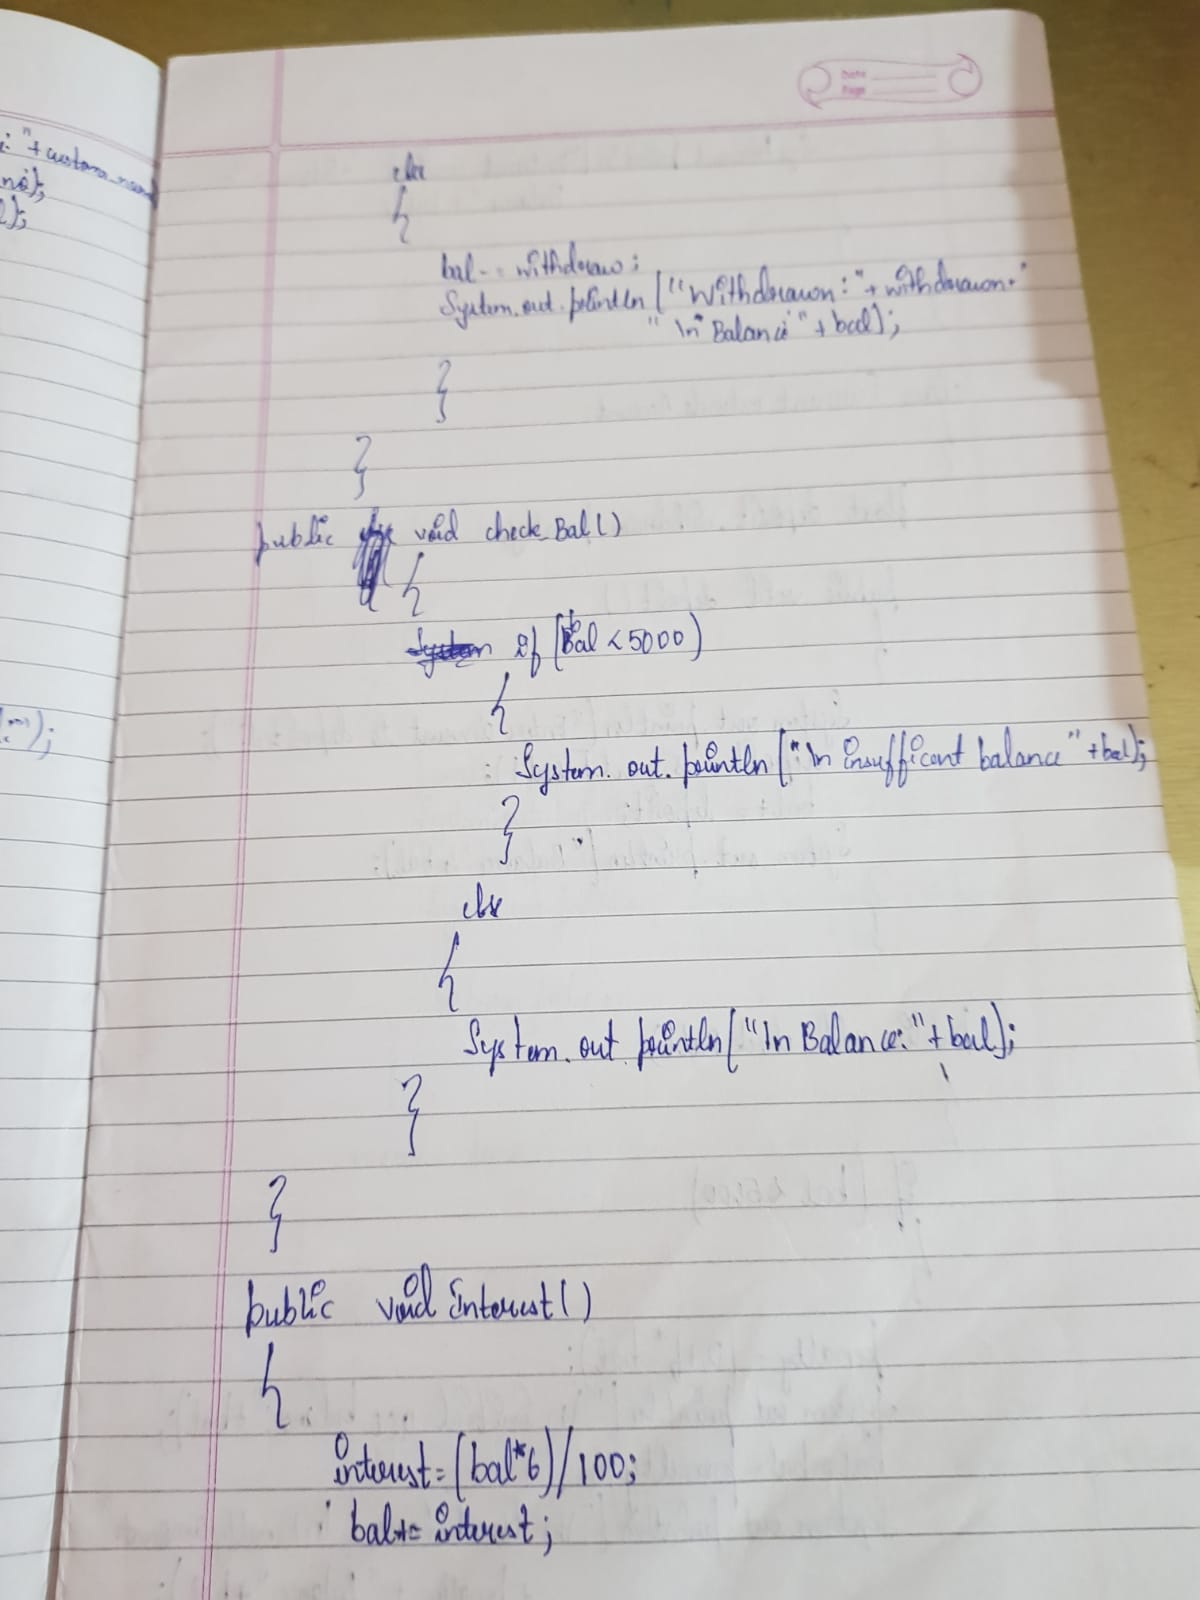 Date
Page
: "+ custom_nam
no);
l);
else
{
bal -= withdraw;
System.out.println ("Withdrawn:"+ withdrawn+"
"\n Balance "+bal);
}
}
public void check_Bal()
{
System if (bal <5000)
{
System. out. println ("\n insufficent balance "+bal);
}
else
{
System. out. println ("\n Balance: "+bal);
}
}
public void interest()
{
interest=(bal*6)/100;
bal+= interest;
);